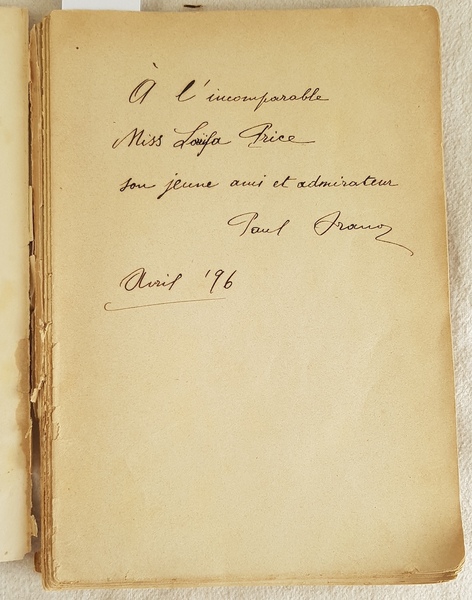 À l'incomparable
Miss Price
son jeune ami et admirateur
Paul Franck
Avril '96